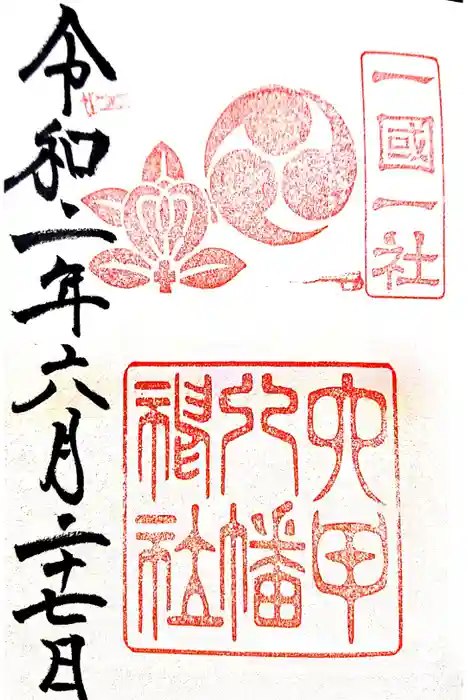 一國一社
六甲
八幡
神社
令和二年六月二十七日